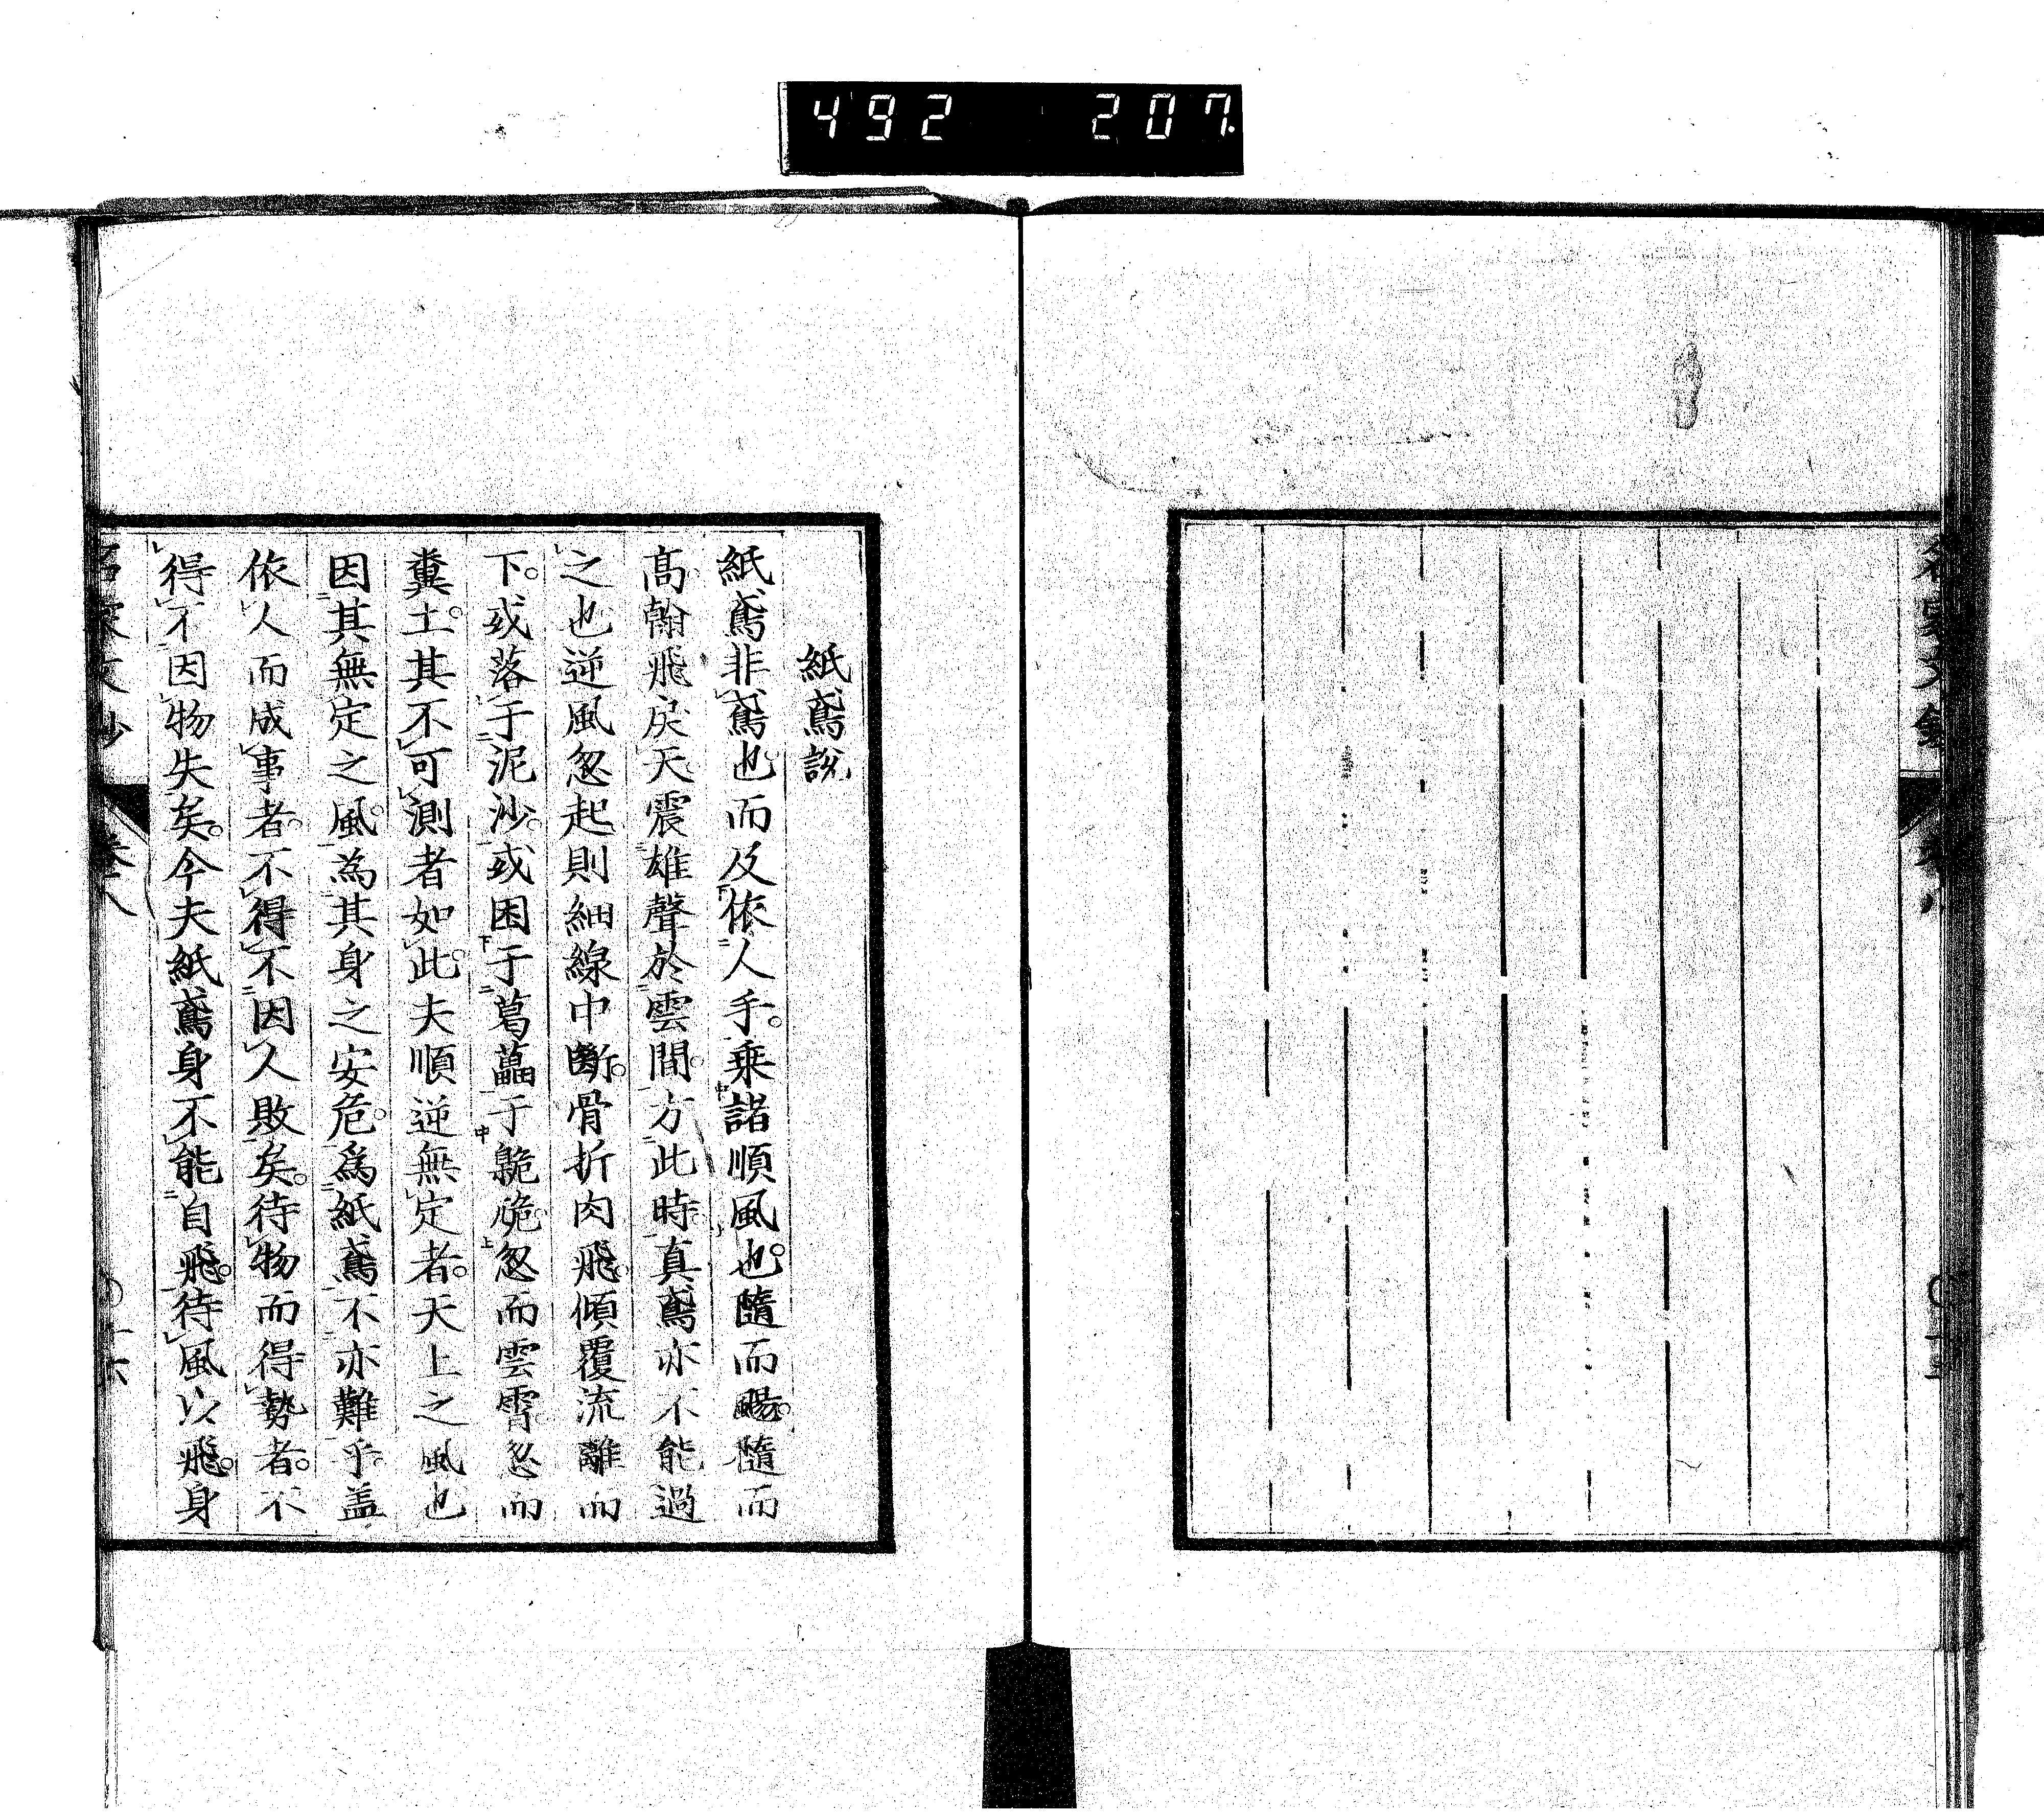 492 207
紙鳶說
紙鳶非鳶也而及依人手乗諸順風也隨而颺隨而
高翰飛戾天震雄聲於雲間方此時真鳶亦不能過
之也逆風忽起則細線中斷骨折肉飛傾覆流離而
下或落于泥沙或困于葛藟于臲卼忽而雲霄忽而
糞土其不可測者如此夫順逆無定者天上之風也
因其無定之風為其身之安危爲紙鳶不亦難乎盖
依人而成事者不得不因人敗矣待物而得勢者不
得不因物失矣今夫紙鳶身不能自飛待風以飛身
名家文抄 卷八 十六